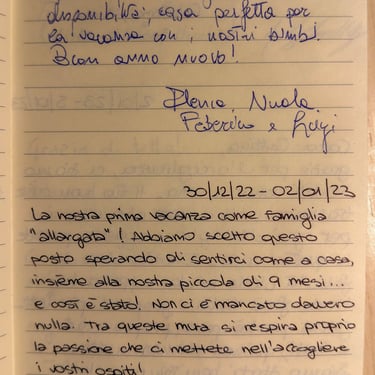 disponibilità; casa perfetta per
la vacanza con i nostri bimbi.
Buon anno nuovo!
Nuala
Federico e Luigi
30/12/22 - 02/01/23
La nostra prima vacanza come famiglia
"allargata"! Abbiamo scelto questo
posto sperando di sentirci come a casa,
insieme alla nostra piccola di 9 mesi...
e così è stato! Non ci è mancato davvero
nulla. Tra queste mura si respira proprio
la passione che ci mettete nell'accogliere
i vostri ospiti!